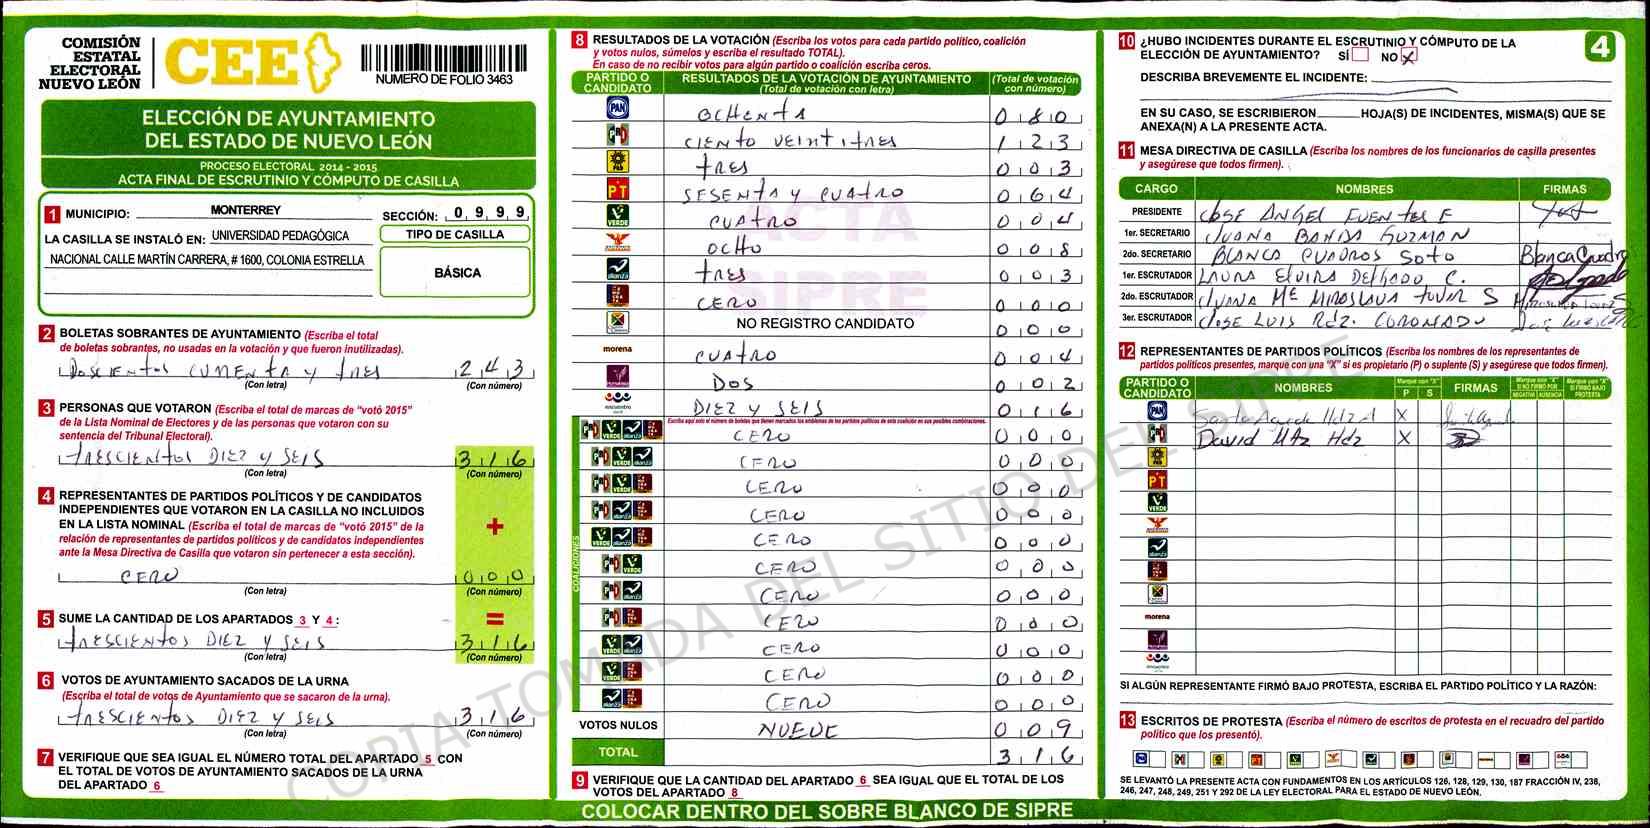 COMISIÓN
ESTATAL
ELECTORAL
NUEVO LEÓN
CEE
NUMERO DE FOLIO 3463
ELECCIÓN DE AYUNTAMIENTO
DEL ESTADO DE NUEVO LEÓN
PROCESO ELECTORAL 2014 - 2015
ACTA FINAL DE ESCRUTINIO Y CÓMPUTO DE CASILLA
1 MUNICIPIO: MONTERREY SECCIÓN: 0 9 9 9
LA CASILLA SE INSTALÓ EN: UNIVERSIDAD PEDAGÓGICA
NACIONAL CALLE MARTÍN CARRERA, # 1600, COLONIA ESTRELLA
TIPO DE CASILLA
BÁSICA
2 BOLETAS SOBRANTES DE AYUNTAMIENTO (Escriba el total
de boletas sobrantes, no usadas en la votación y que fueron inutilizadas).
Doscientos CURENTA y tres 2 4 3
(Con letra) (Con número)
3 PERSONAS QUE VOTARON (Escriba el total de marcas de "votó 2015"
de la Lista Nominal de Electores y de las personas que votaron con su
sentencia del Tribunal Electoral).
trescientos DIEZ y SEIS 3 1 6
(Con letra) (Con número)
4 REPRESENTANTES DE PARTIDOS POLÍTICOS Y DE CANDIDATOS
INDEPENDIENTES QUE VOTARON EN LA CASILLA NO INCLUIDOS
EN LA LISTA NOMINAL (Escriba el total de marcas de "votó 2015" de la
relación de representantes de partidos políticos y de candidatos independientes
ante la Mesa Directiva de Casilla que votaron sin pertenecer a esta sección).
+
CERO 0 0 0
(Con letra) (Con número)
5 SUME LA CANTIDAD DE LOS APARTADOS 3 Y 4 : =
trescientos DIEZ y SEIS 3 1 6
(Con letra) (Con número)
6 VOTOS DE AYUNTAMIENTO SACADOS DE LA URNA
(Escriba el total de votos de Ayuntamiento que se sacaron de la urna).
trescientos DIEZ y SEIS 3 1 6
(Con letra) (Con número)
7 VERIFIQUE QUE SEA IGUAL EL NÚMERO TOTAL DEL APARTADO 5 CON
EL TOTAL DE VOTOS DE AYUNTAMIENTO SACADOS DE LA URNA
DEL APARTADO 6
8 RESULTADOS DE LA VOTACIÓN (Escriba los votos para cada partido político, coalición
y votos nulos, súmelos y escriba el resultado TOTAL).
En caso de no recibir votos para algún partido o coalición escriba ceros.
PARTIDO O CANDIDATO RESULTADOS DE LA VOTACIÓN DE AYUNTAMIENTO (Total de votación con letra) (Total de votación con número)
PAN OCHENTA 0 8 0
PRI CIENTO VEINTITRES 1 2 3
PRD tRES 0 0 3
PT SESENTA y CUATRO 0 6 4
VERDE CUATRO 0 0 4
OCHO 0 0 8
alianza tRES 0 0 3
CERO 0 0 0
NO REGISTRO CANDIDATO 0 0 0
morena CUATRO 0 0 4
DOS 0 0 2
encuentro DIEZ y SEIS 0 1 6
Escriba aquí solo el número de boletas que tienen marcados los emblemas de los partidos políticos de esta coalición en sus posibles combinaciones.
COALICIONES
PRI VERDE alianza CERO 0 0 0
PRI VERDE alianza CERO 0 0 0
PRI VERDE CERO 0 0 0
PRI alianza CERO 0 0 0
VERDE alianza CERO 0 0 0
PRI VERDE CERO 0 0 0
PRI alianza CERO 0 0 0
PRI CERO 0 0 0
VERDE alianza CERO 0 0 0
VERDE CERO 0 0 0
alianza CERO 0 0 0
VOTOS NULOS NUEVE 0 0 9
TOTAL 3 1 6
ACTA
SIPRE
9 VERIFIQUE QUE LA CANTIDAD DEL APARTADO 6 SEA IGUAL QUE EL TOTAL DE LOS
VOTOS DEL APARTADO 8
COLOCAR DENTRO DEL SOBRE BLANCO DE SIPRE
10 ¿HUBO INCIDENTES DURANTE EL ESCRUTINIO Y CÓMPUTO DE LA
ELECCIÓN DE AYUNTAMIENTO? SÍ NO X
4
DESCRIBA BREVEMENTE EL INCIDENTE:
EN SU CASO, SE ESCRIBIERON HOJA(S) DE INCIDENTES, MISMA(S) QUE SE
ANEXA(N) A LA PRESENTE ACTA.
11 MESA DIRECTIVA DE CASILLA (Escriba los nombres de los funcionarios de casilla presentes
y asegúrese que todos firmen).
CARGO NOMBRES FIRMAS
PRESIDENTE JOSE ANGEL FUENTES F
1er. SECRETARIO JUANA BANDA GUZMAN
2do. SECRETARIO BLANCA CUADROS SOTO Blanca Cuadro
1er. ESCRUTADOR LAURA ELVIRA DELGADO C.
2do. ESCRUTADOR JUANA Mª MIROSLAVA TOVAR S
3er. ESCRUTADOR JOSE LUIS Rdz. CORONADO
12 REPRESENTANTES DE PARTIDOS POLÍTICOS (Escriba los nombres de los representantes de
partidos políticos presentes, marque con una "X" si es propietario (P) o suplente (S) y asegúrese que todos firmen).
PARTIDO O CANDIDATO NOMBRES Marque con "X" P S FIRMAS Marque con "X" SI NO FIRMÓ POR NEGATIVA AUSENCIA Marque con "X" SI FIRMÓ BAJO PROTESTA
PAN X
PRI David Mtz Hdz X
PRD
PT
VERDE
alianza
morena
SI ALGÚN REPRESENTANTE FIRMÓ BAJO PROTESTA, ESCRIBA EL PARTIDO POLÍTICO Y LA RAZÓN:
13 ESCRITOS DE PROTESTA (Escriba el número de escritos de protesta en el recuadro del partido
político que los presentó).
SE LEVANTÓ LA PRESENTE ACTA CON FUNDAMENTOS EN LOS ARTÍCULOS 126, 128, 129, 130, 187 FRACCIÓN IV, 238,
246, 247, 248, 249, 251 Y 292 DE LA LEY ELECTORAL PARA EL ESTADO DE NUEVO LEÓN.
COPIA TOMADA DEL SITIO DEL SIPRE